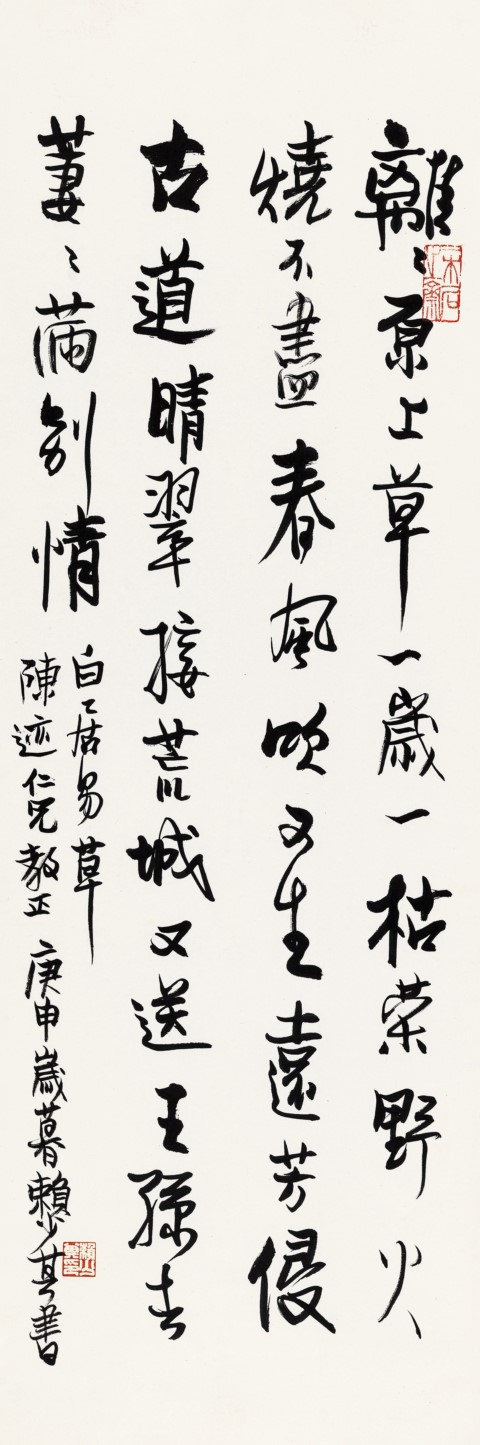 離〻原上草一歲一枯荣野火
燒不盡春風吹又生遠芳侵
古道晴翠接荒城又送王孫去
萋〻滿别情
白乙居易草
陳迹仁兄教正 庚申歲暮賴少其書
賴少其印